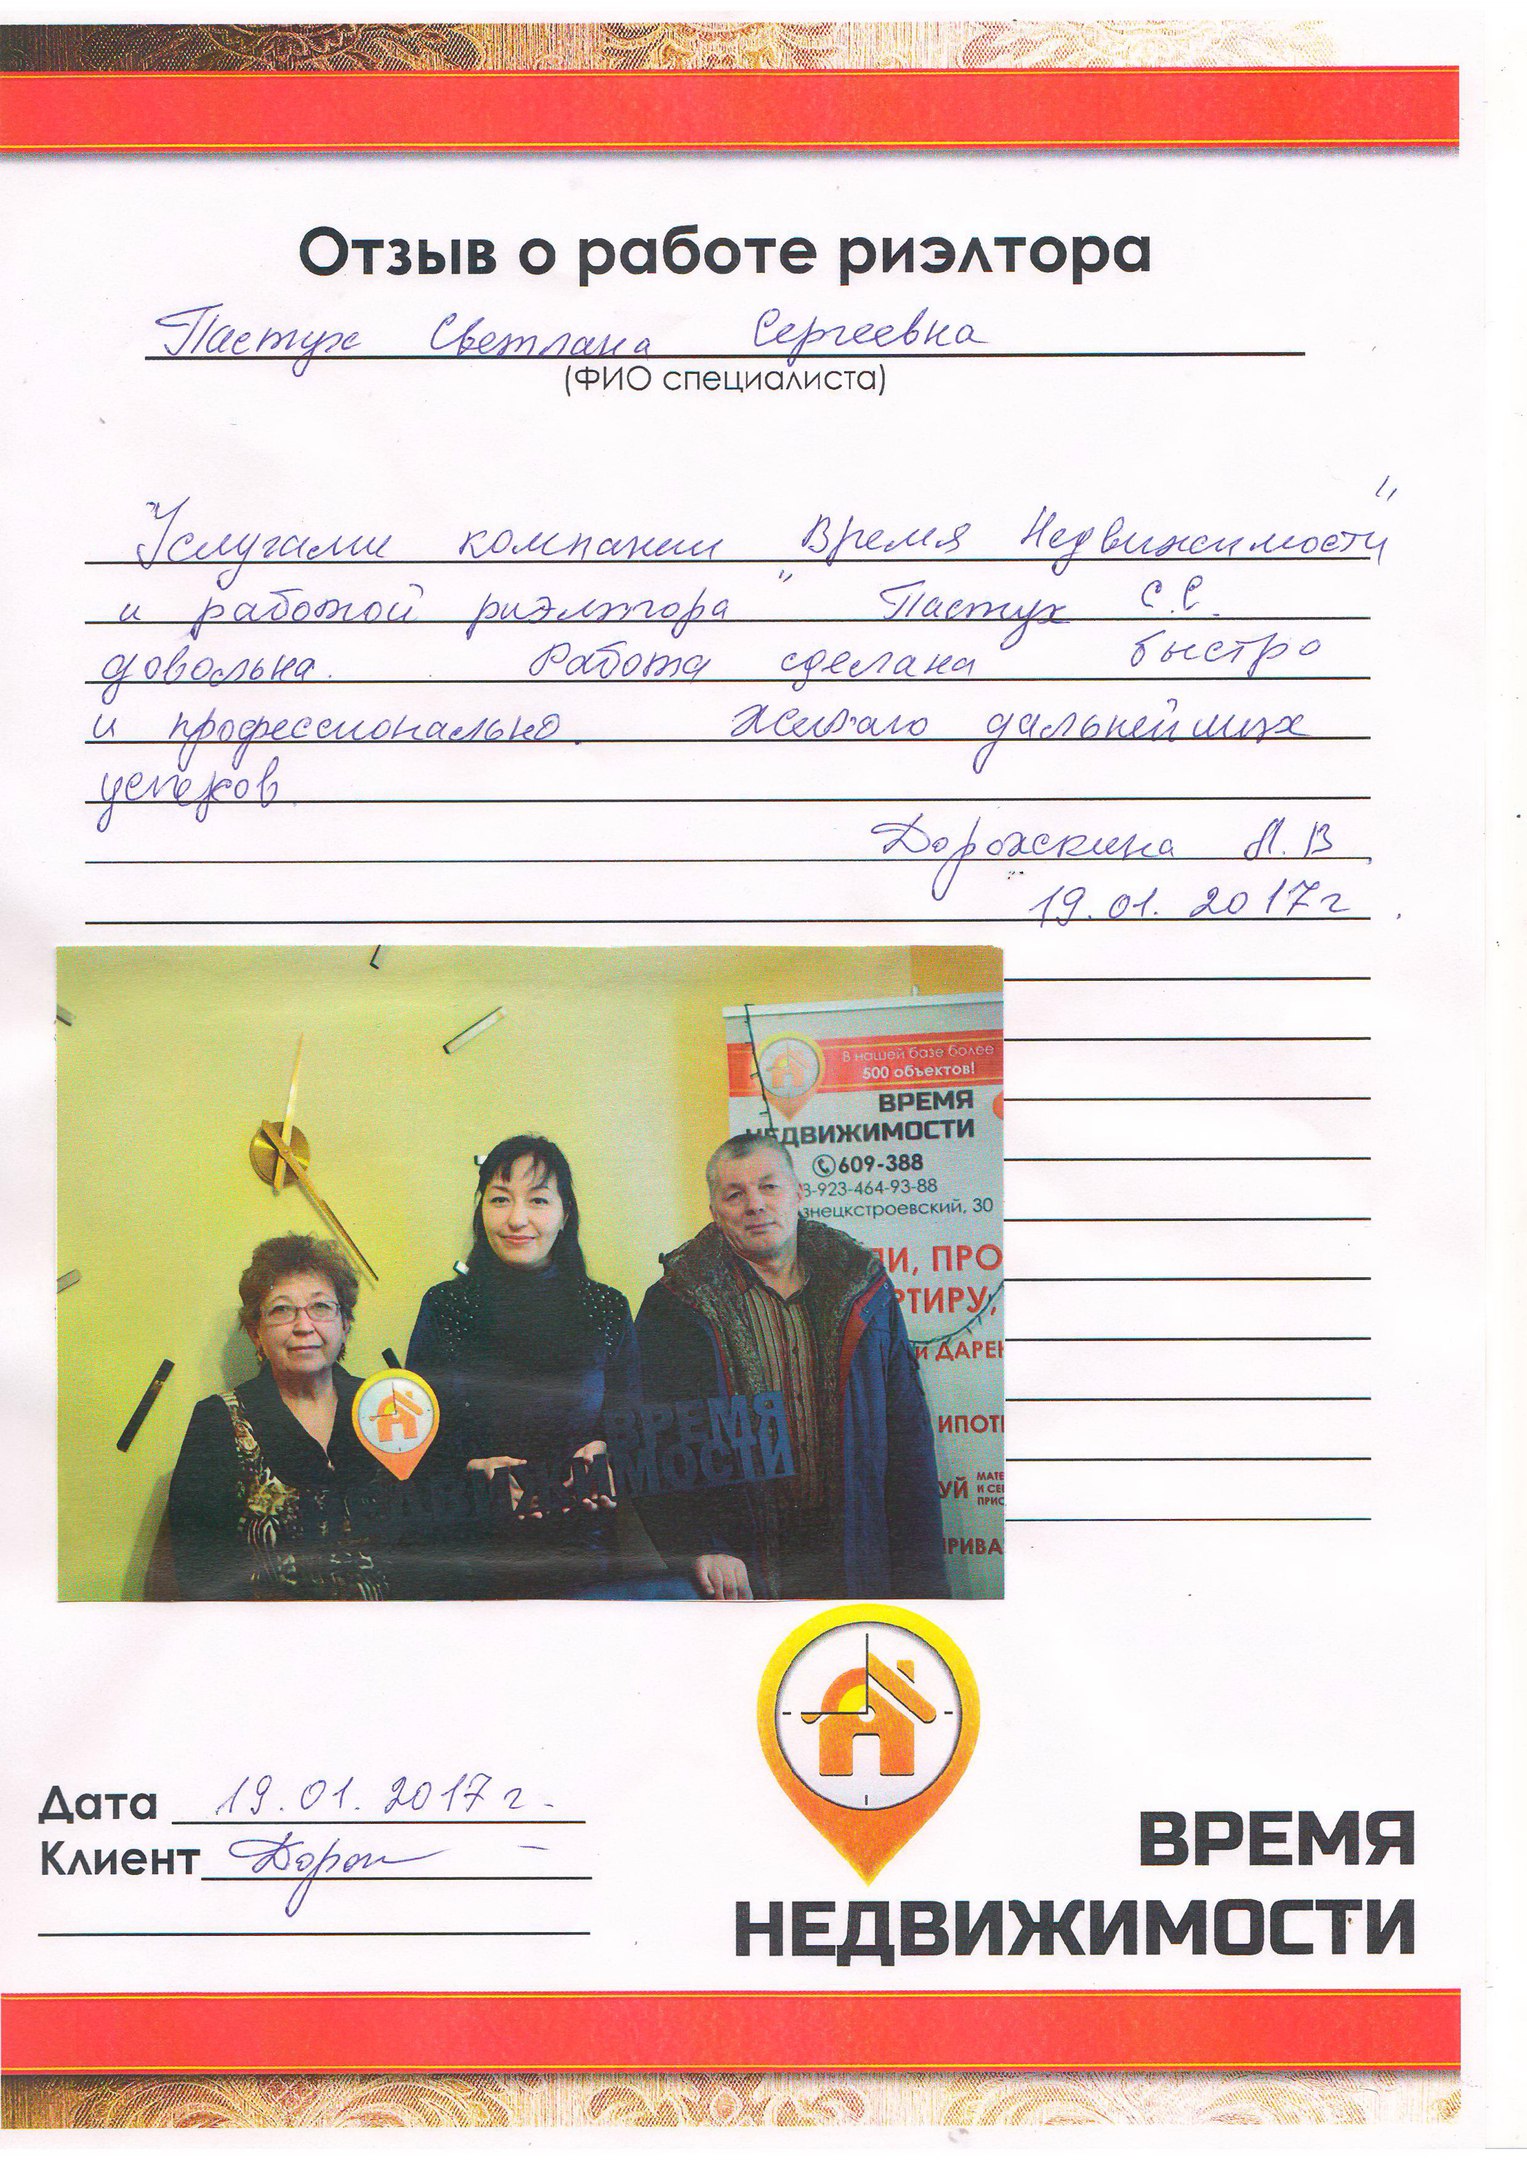 Отзыв о работе риэлтора
Пастух Светлана Сергеевна
(ФИО специалиста)
Услугами компании "Время Недвижимости"
и работой риэлтора Пастух С.С.
довольна. Работа сделана быстро
и профессионально. Желаю дальнейших
успехов
Дорожкина Л.В
19.01.2017г.
В нашей базе более
500 объектов!
ВРЕМЯ
НЕДВИЖИМОСТИ
609-388
8-923-464-93-88
знецкстроевский, 30
ЛИ, ПРО
РТИРУ,
и ДАРЕН
ВРЕМЯ
ДВИЖИМОСТИ
ИПОТЕ
УЙ МАТЕ
И СЕ
ПРИС
РИВА
Дата 19.01.2017г.
Клиент Дорож
ВРЕМЯ
НЕДВИЖИМОСТИ